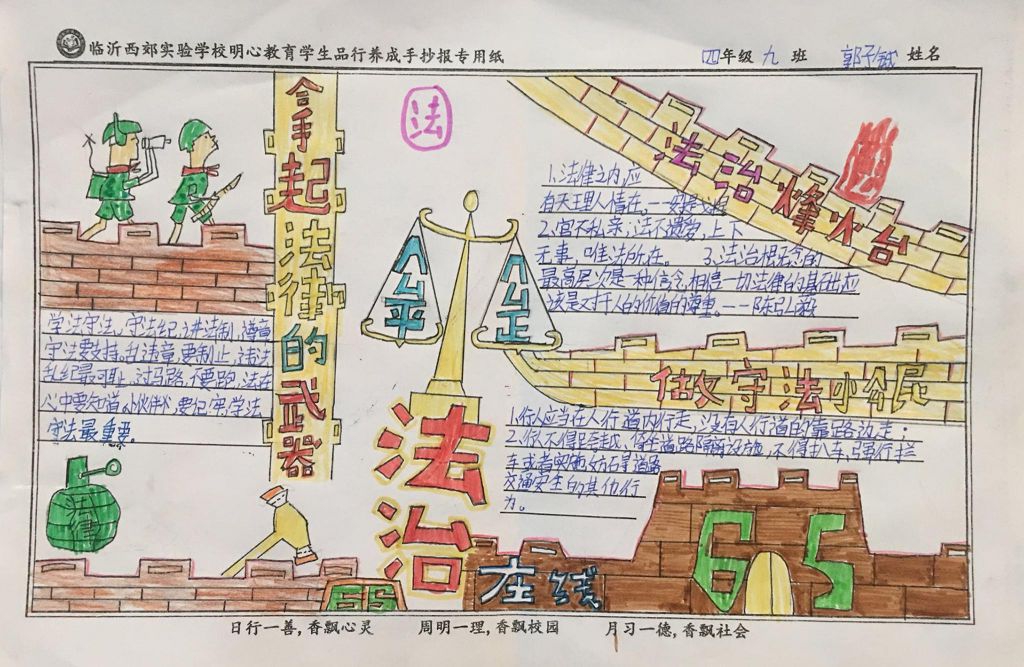 临沂西郊实验学校明心教育学生品行养成手抄报专用纸
四年级 九 班 姓名
合手起法律的武器
法
法治烽火台
1、法律之内,应
有天理人情在。
2、官不私亲,法不遗爱,上下
无事,唯法所在。 3、法治概念的
最高层次是一种信念,相信一切法律的基础,应
该是对于人的价值的尊重。——陈弘毅
公平
公正
学法守法,守法纪,讲法制,遵章
守法要支持。乱违章,要制止,违法
乱纪最可耻。过马路,不要跑,法在
心中要知道。小伙伴,要记牢,学法
守法最重要。
做守法小公民
1、行人应当在人行道内行走,没有人行道的靠路边走;
2、你不得跨越、倚坐道路隔离设施,不得扒车、强行拦
车或者实施妨碍道路
交通安全的其他行
为。
法治
在线
66
65
日行一善,香飘心灵 周明一理,香飘校园 月习一德,香飘社会